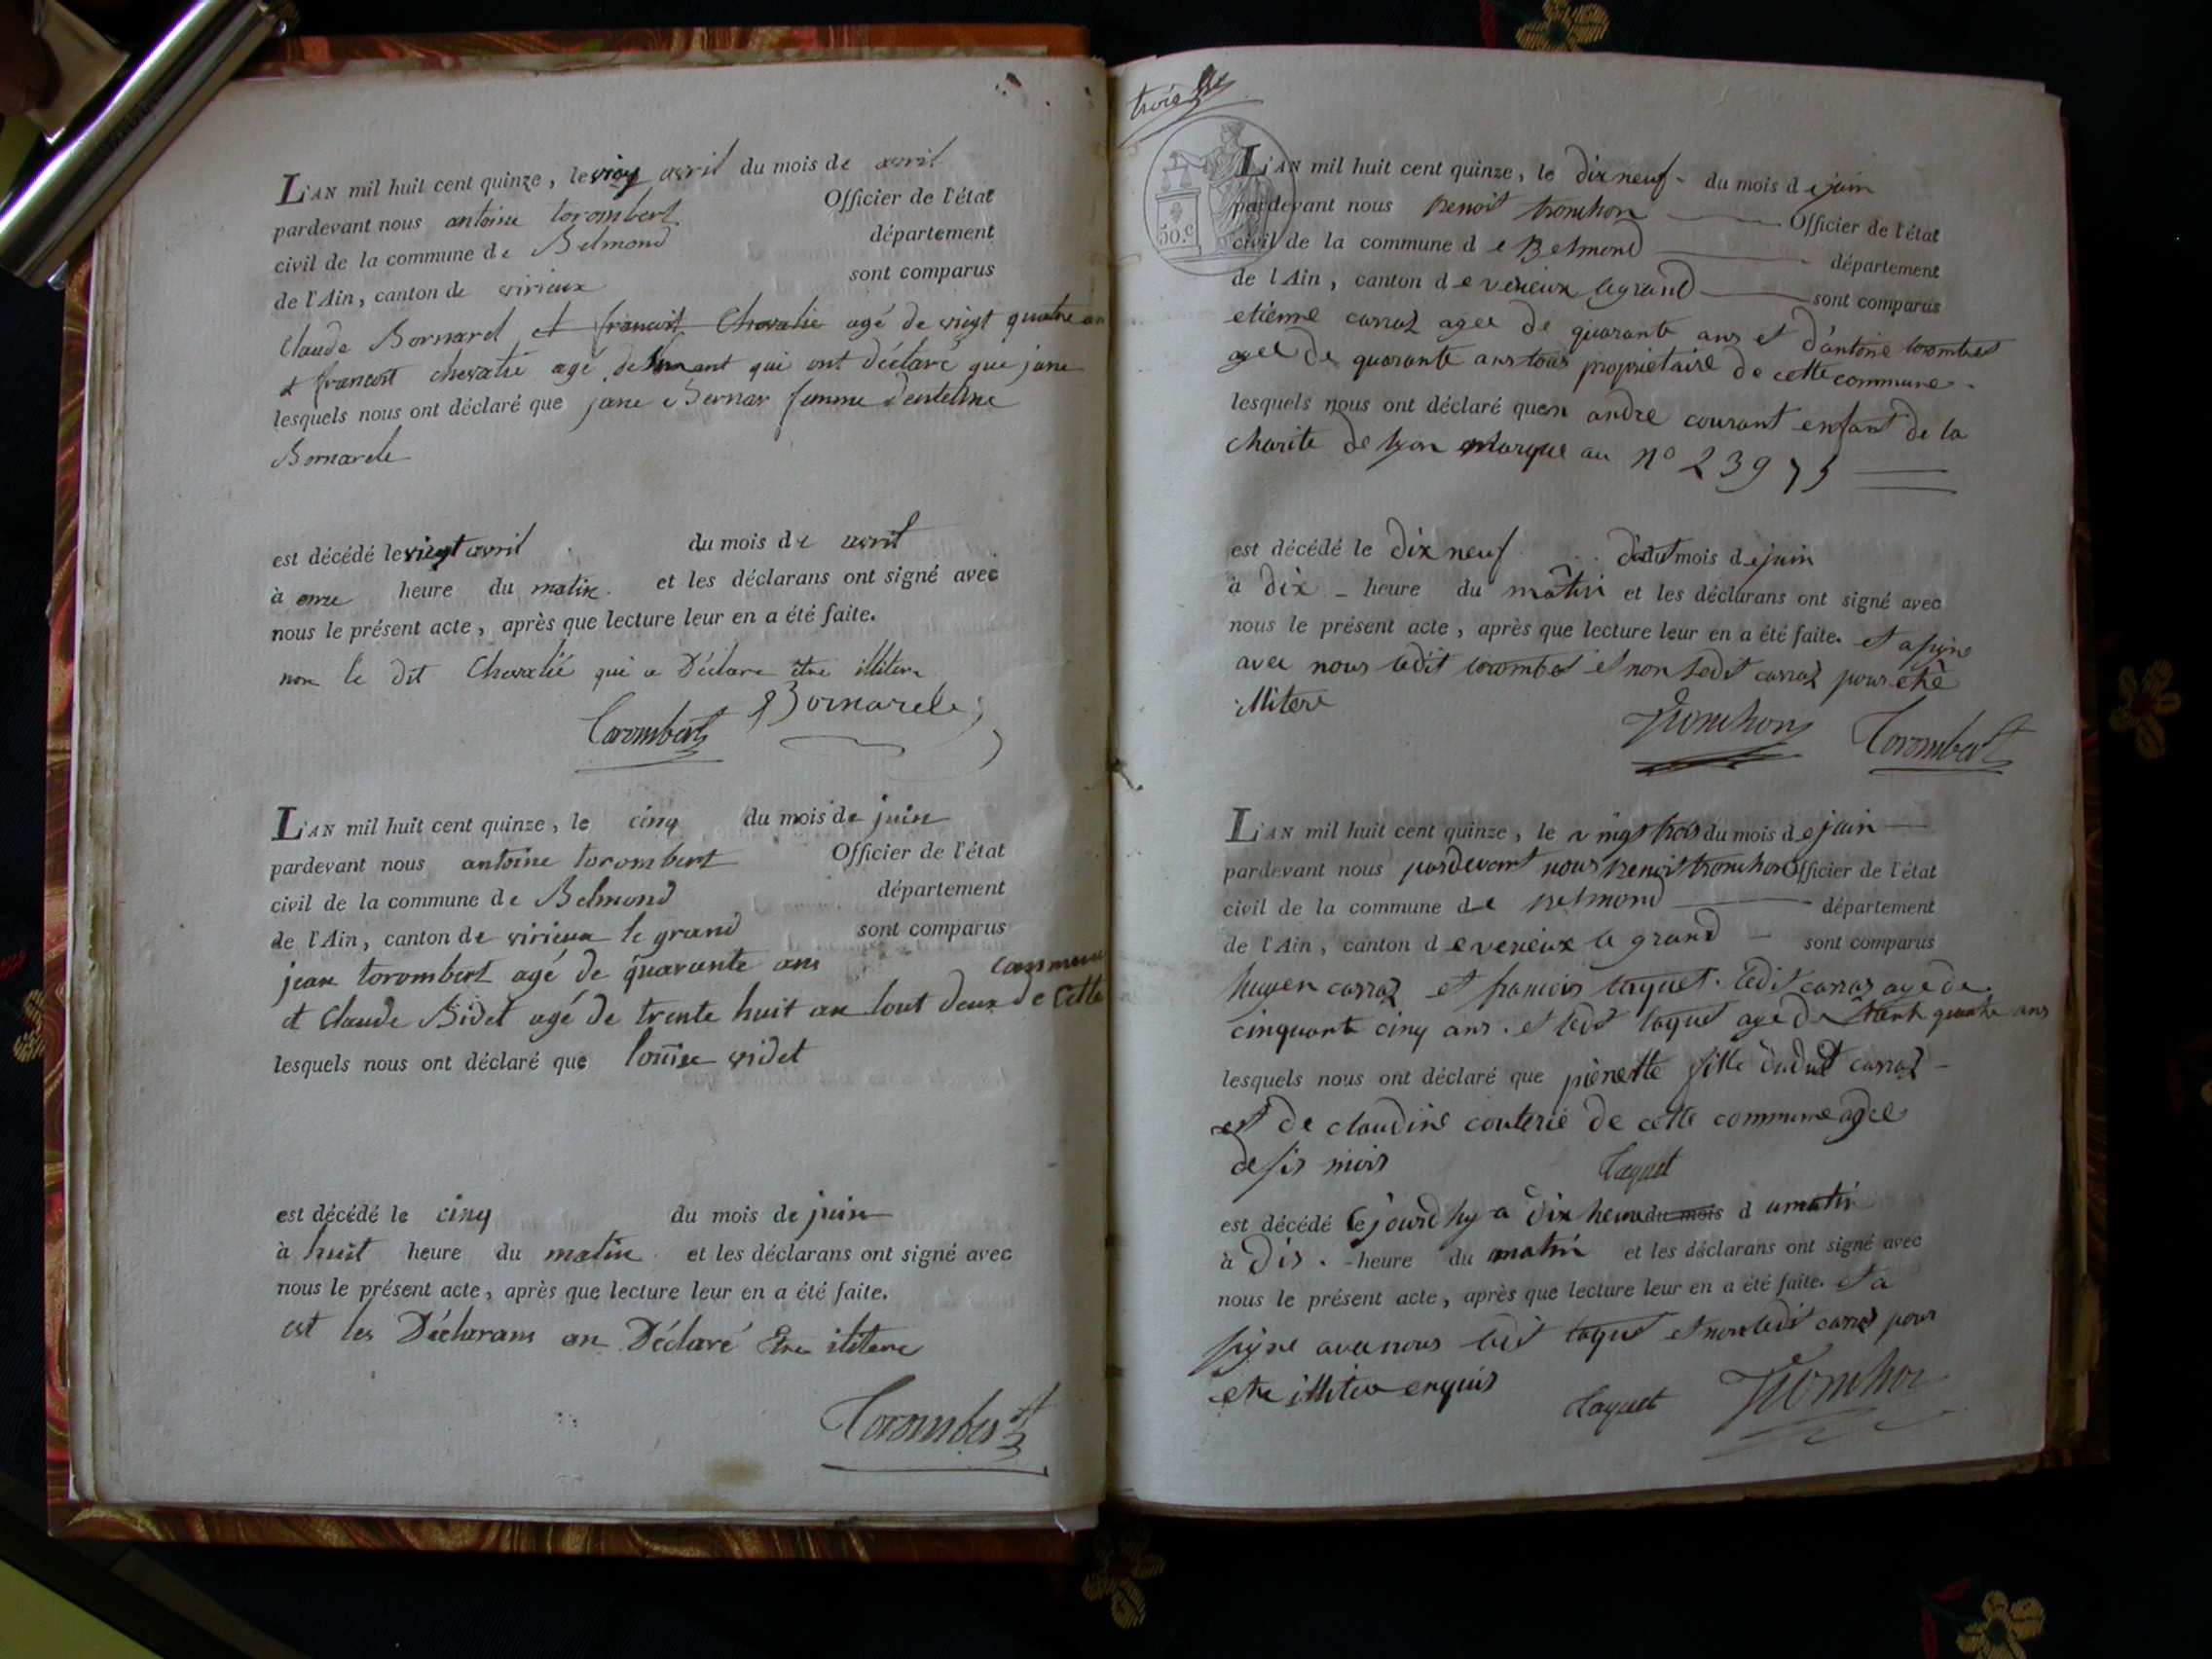 L'AN mil huit cent quinze, le vingt avril du mois de avril
pardevant nous antoine torombert Officier de l'état
civil de la commune de Belmond département
de l'Ain, canton de virieux sont comparus
Claude Bornard et francoit Chevalie agé de vingt quatre an
et francoit chevalié agé de qui ont déclaré que jane
lesquels nous ont déclaré que jane Bernar femme
Bornarele
est décédé le vingt avril du mois de avril
à onze heure du matin et les déclarans ont signé avec
nous le présent acte, après que lecture leur en a été faite.
non le dit Chevalié qui a Déclare être illitere
Torombert Bornarele
L'AN mil huit cent quinze, le cinq du mois de juin
pardevant nous antoine torombert Officier de l'état
civil de la commune de Belmond département
de l'Ain, canton de virieux le grand sont comparus
jean torombert agé de quarante ans commune
et Claude Bidet agé de trente huit an tout deux de Cette
lesquels nous ont déclaré que louise videt
est décédé le cinq du mois de juin
à huit heure du matin et les déclarans ont signé avec
nous le présent acte, après que lecture leur en a été faite.
est les Déclarans on Déclaré Etre ilitere
Torombert
trois
50.c
L'AN mil huit cent quinze, le dix neuf du mois de juin
pardevant nous benoit tronchon Officier de l'état
civil de la commune de Belmond département
de l'Ain, canton de verieux legrand sont comparus
etienne carraz agee de quarante ans et d'antoine torombert
agee de quarante ans tous propriétaire de cette commune
lesquels nous ont déclaré quen andre courant enfant de la
charite de lyon marque au N° 23975
est décédé le dix neuf dudit mois de juin
à dix heure du matin et les déclarans ont signé avec
nous le présent acte, après que lecture leur en a été faite. et a signe
avec nous ledit torombert et non ledit carraz pour etre
illitere
Tronchon Torombert
L'AN mil huit cent quinze, le vingt trois du mois de juin
pardevant nous pardevant nous benoit tronchon Officier de l'état
civil de la commune de belmond département
de l'Ain, canton de verieux le grand sont comparus
hugen carraz et francois taquet. ledit carraz age de
cinquante cinq ans. et ledit taquet age de trente quatre ans
lesquels nous ont déclaré que pierrette fille dudit carraz
est de claudine couterie de cette commune agee
de sis mois
Taquet
est décédé le jourdhy a dix heure du mois du matin
à dis heure du matin et les déclarans ont signé avec
nous le présent acte, après que lecture leur en a été faite. et a
signe avec nous ledit taquet et non ledit carraz pour
etre illitere enquis
Taquet Tronchon